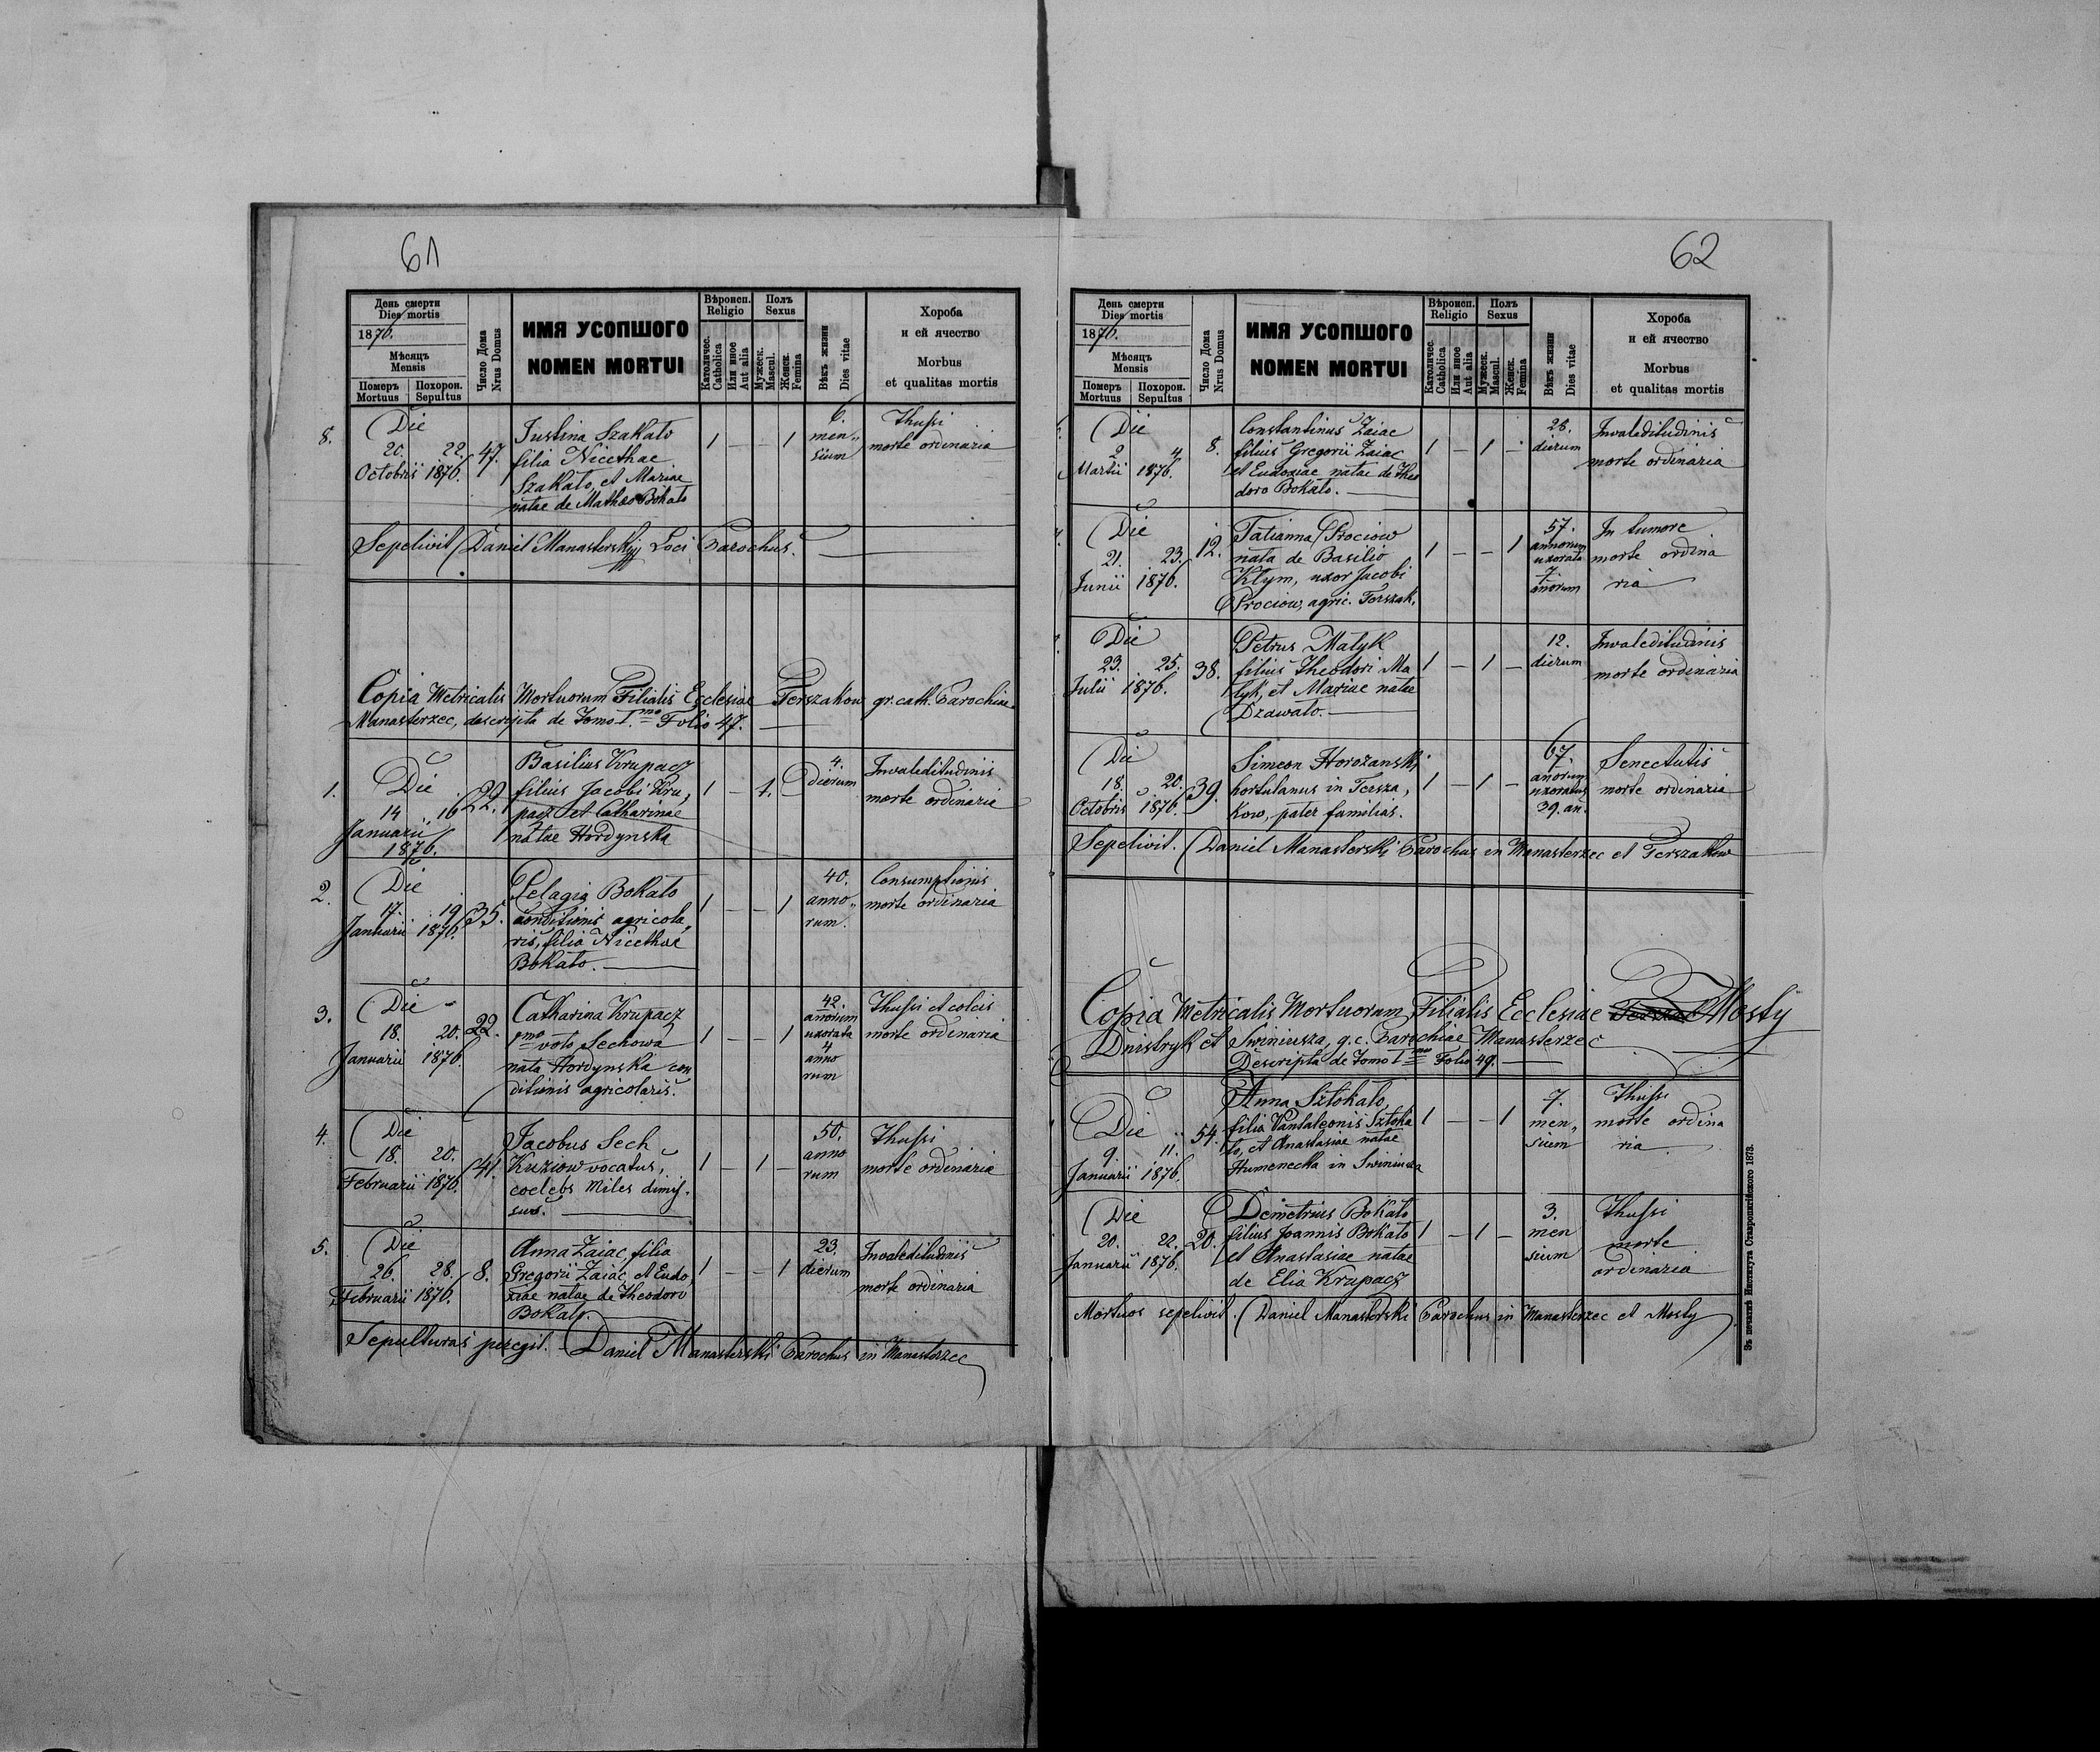 61
День смерти
Dies mortis
1876.
Мѣсяць
Mensis
Померъ Похорон.
Mortuus Sepultus
Число Дома
Nrus Domus
ИМЯ УСОПШОГО
NOMEN MORTUI
Вѣроисп.
Religio
Католичес.
Catholica
Или иное
Aut alia
Полъ
Sexus
Мужеск.
Mascul.
Женск.
Femina
Вѣкъ жизни
Dies vitae
Хороба
и ей ячество
Morbus
et qualitas mortis
8. Die
20. 22. 47.
Octobris 1876.
Justina Szakało
filia Nicethae
Szakało, et Mariae
natae de Matheo Bokało
1 — — 1
6.
men„
sium
Thussi
morte ordinaria
Sepelivit Daniel Manasterskyj Loci Parochus. —
Copia Metricalis Mortuorum Filialis Ecclesiae Terszakow gr. cath. Parochiae
Manasterzec, descripta de Tomo I.mo Folio 47. —
1. Die
14 16 22.
Januarii
1876.
Basilius Krupacz
filius Jacobi Kru,
pacz et Catharinae
natae Hordynska
1 — 1.
4.
dierum
Invaleditudinis
morte ordinaria
2. Die
17. 19 35.
Januarii 1876.
Pelagia Bokało
conditionis agricola,
ris, filia Nicethae
Bokało. —
1 — — 1
40.
anno„
rum.
Consumptionis
morte ordinaria
3. Die
18. 20. 22.
Januarii 1876.
Catharina Krupacz
1mo voto Sechowa
nata Hordynska con
ditionis agricolaris.
1 — — 1
42.
anorum
uxorata
4
anno
rum
Thussi et colcis
morte ordinaria
4. Die
18. 20. 41.
Februarii 1876.
Jacobus Sech
Kuziow vocatus,
coelebs Miles dimis.
sus. —
1 — 1 —
50.
anno
rum
Thussi
morte ordinaria
5. Die
26. 28. 8.
Februarii 1876.
Anna Zaiac, filia
Gregorii Zaiac, et Eudo,
xiae natae de Theodoro
Bokało. —
1 — — 1
23.
dierum
Invaleditudinis
morte ordinaria
Sepulturas peregit. Daniel Manasterski Parochus in Manasterzec
62
День смерти
Dies mortis
1876.
Мѣсяць
Mensis
Померъ Похорон.
Mortuus Sepultus
Число Дома
Nrus Domus
ИМЯ УСОПШОГО
NOMEN MORTUI
Вѣроисп.
Religio
Католичес.
Catholica
Или иное
Aut alia
Полъ
Sexus
Мужеск.
Mascul.
Женск.
Femina
Вѣкъ жизни
Dies vitae
Хороба
и ей ячество
Morbus
et qualitas mortis
Die
2 4 8.
Martii 1876.
Constantinus Zaiac
filius Gregorii Zaiac
et Eudoxiae natae de Theo
doro Bokało. —
1 — 1 —
28.
dierum
Invaleditudinis
morte ordinaria
Die
21. 23. 12.
Junii 1876.
Tatianna Prociow
nata de Basilio
Kłym, uxor Jacobi
Prociow, agric. Terszak.
1 — — 1
57.
annorum
uxorata
7.
anorum
In tumore
morte ordina
ria
Die
23. 25. 38.
Julii 1876.
Petrus Matyk
filius Theodori Ma
tyk, et Mariae natae
Dzawało. —
1 — 1 —
12.
dierum
Invaleditudinis
morte ordinaria
Die
18. 20. 39.
Octobris 1876.
Simeon Horożanski
hortulanus in Tersza,
kow, pater familias.
1 — 1 —
67.
anorum
uxoratus
39. an.
Senectutis
morte ordinaria
Sepelivit. Daniel Manasterski Parochus in Manasterzec et Terszakow
Copia Metricalis Mortuorum Filialis Ecclesiae Mosty
Dnistryk et Swiniusza, g. c. Parochiae Manasterzec
Descripta de Tomo I.mo Folio 49. —
Die
9. 11. 54.
Januarii 1876.
Anna Sztokało,
filia Pantaleonis Sztoka
ło, et Anastasiae natae
Humenecka in Swiniusza
1 — — 1
7.
men„
sium
Thussi
morte ordina
ria.
Die
20. 22. 20.
Januarii 1876.
Demetrius Bokało
filius Joannis Bokało
et Anastasiae natae
de Elia Krupacz
1 — 1 —
3.
men
sium
Thussi
morte
ordinaria
Mortuos sepelivit. Daniel Manasterski Parochus in Manasterzec et Mosty
Зъ печатнѣ Института Ставропигійского 1873.